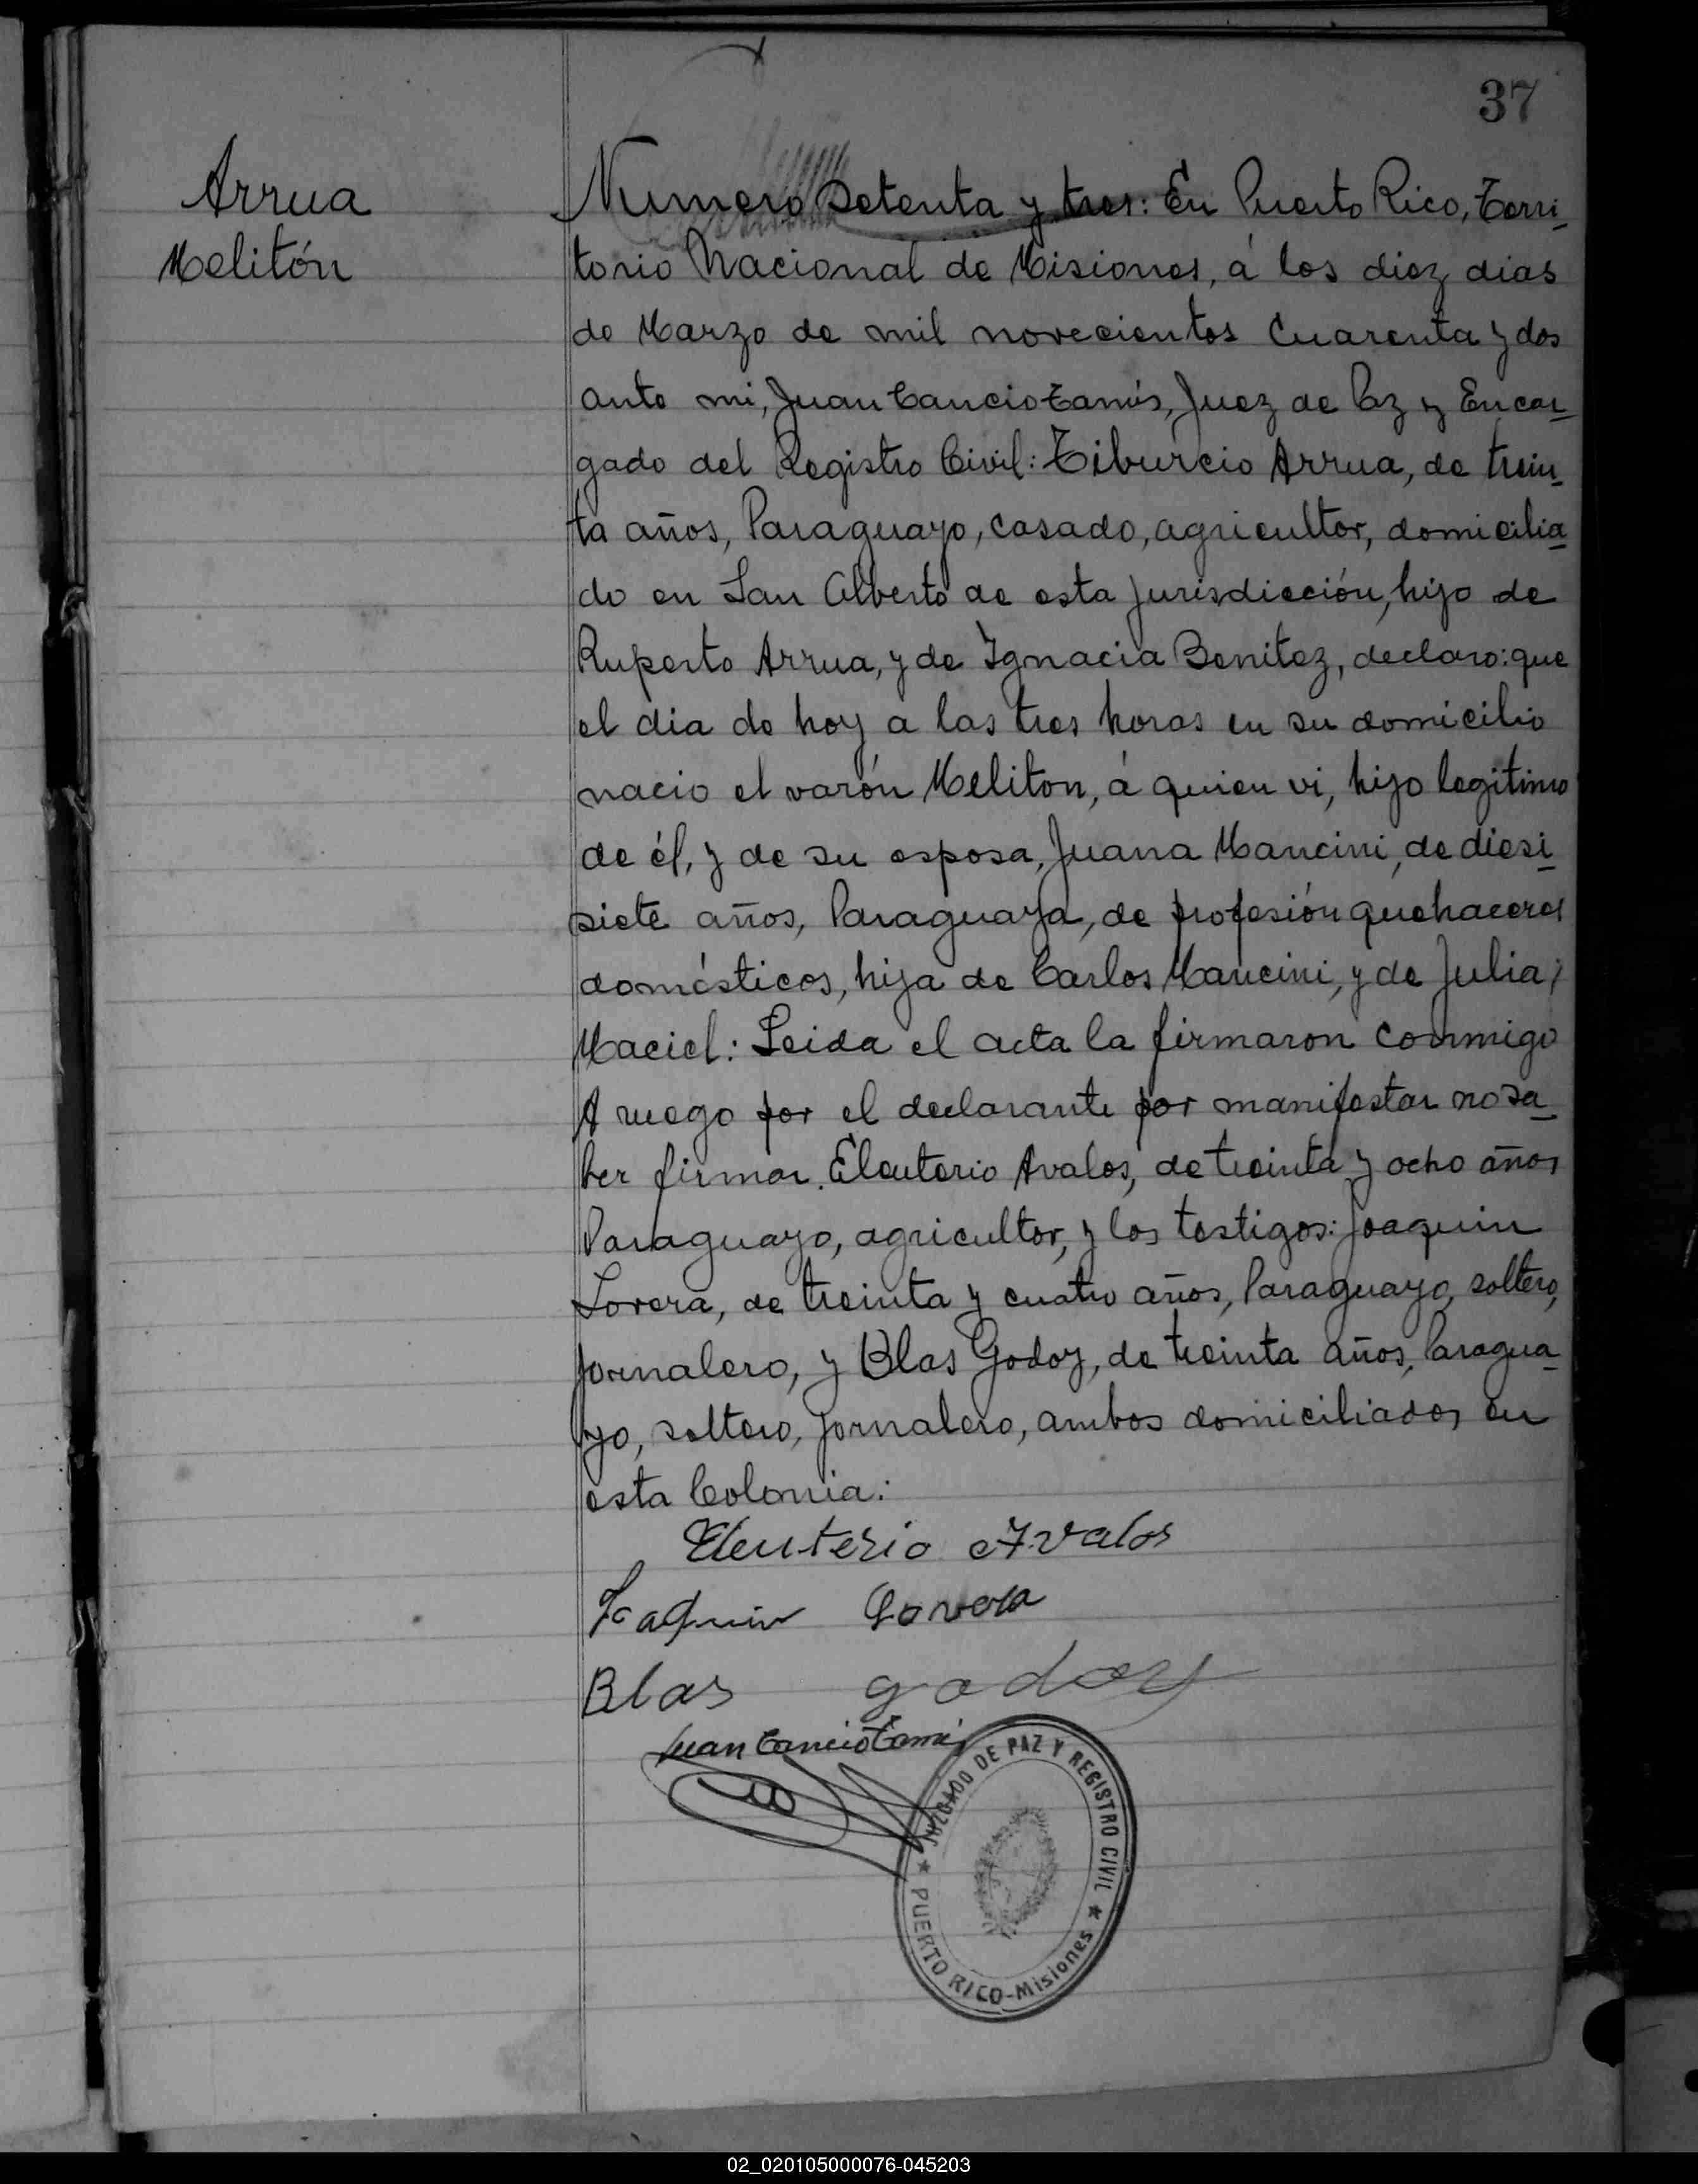 37
Arrua
Melitón
Numero Setenta y tres: En Puerto Rico, Terri
torio Nacional de Misiones, á los diez dias
de Marzo de mil novecientos Cuarenta y dos
ante mi, Juan Cancio Tamis, Juez de Paz y Encar
gado del Registro Civil: Tiburcio Arrua, de trein
ta años, Paraguayo, casado, agricultor, domicilia
do en San Alberto de esta jurisdicción, hijo de
Ruperto Arrua, y de Ignacia Benitez, declaro: que
el dia de hoy a las tres horas en su domicilio
nacio el varón Meliton, á quien vi, hijo legitimo
de él, y de su esposa, Juana Mancini, de diesi
siete años, Paraguaya, de profesión quehaceres
domésticos, hija de Carlos Mancini, y de Julia
Maciel: Leida el acta la firmaron conmigo
A ruego por el declarante por manifestar no sa
ber firmar. Eleuterio Avalos, de treinta y ocho años
Paraguayo, agricultor, y los testigos: Joaquin
Lovera, de treinta y cuatro años, Paraguayo, soltero,
jornalero, y Blas Godoy, de treinta años, Paragua
yo, soltero, jornalero, ambos domiciliados en
esta Colonia:
Eleuterio Avalos
Joaquin Lovera
Blas godoy
Juan Cancio
JUZGADO DE PAZ Y REGISTRO CIVIL
PUERTO RICO-Misiones
02_020105000076-045203